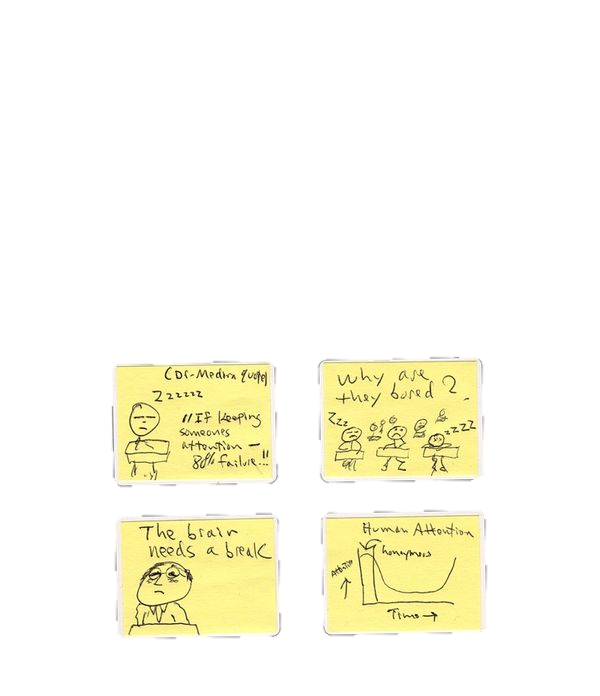 (Dr. Medina quote)
Zzzzzz
"If keeping
someones
attention –
80% failure..."
Why are
they bored?
Zzzz
zzzz
The brain
needs a break
Human Attention
honeymoon
Attention
Time→